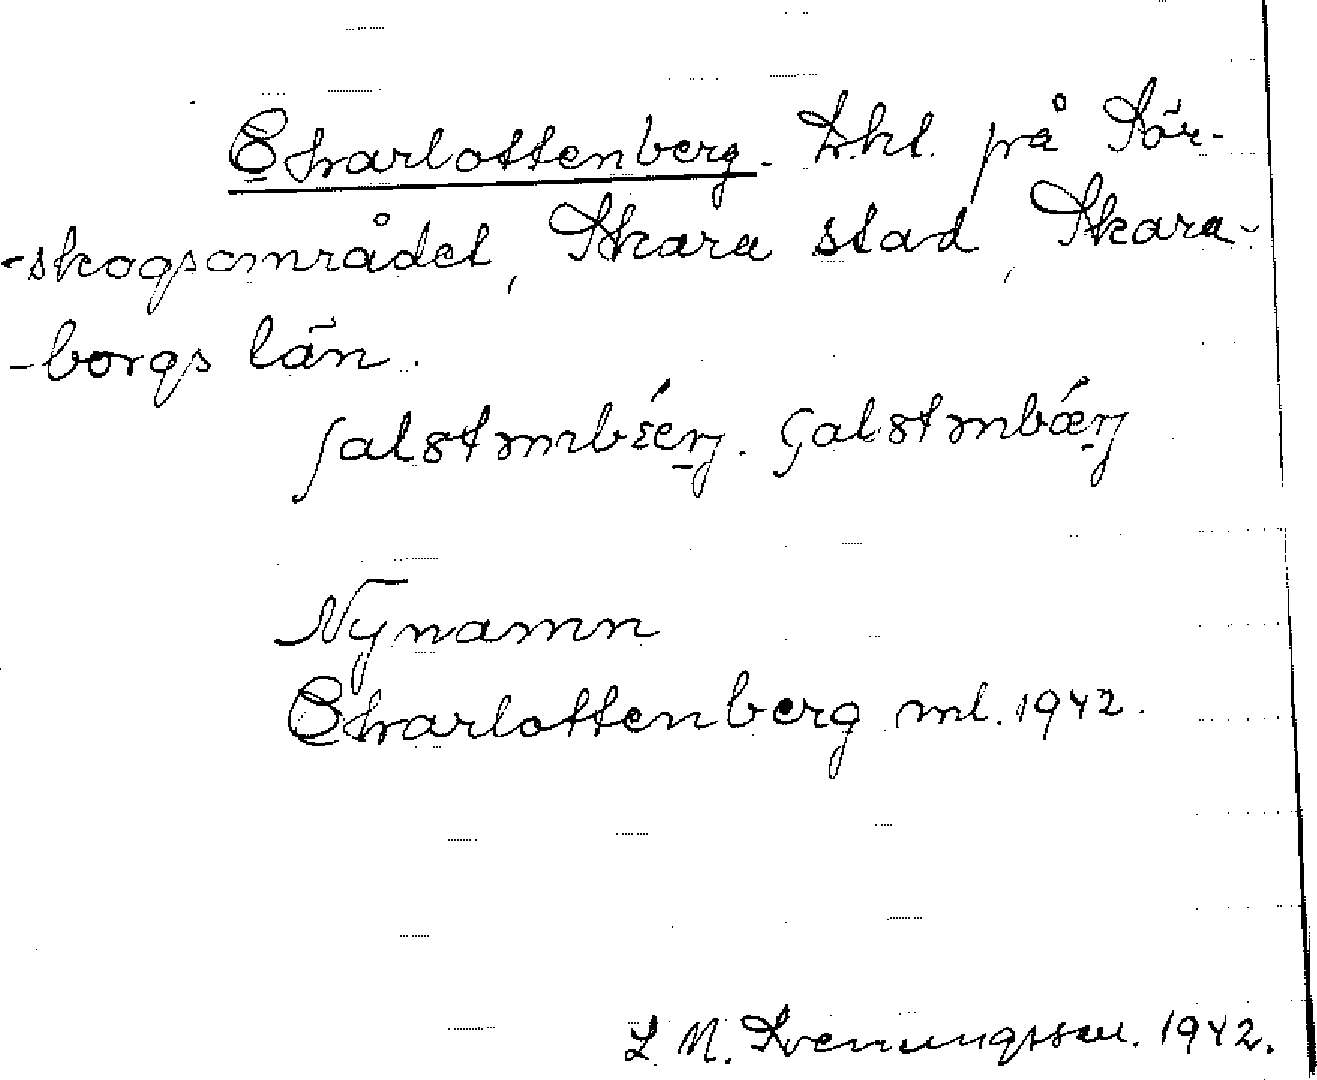 Charlottenberg. Lht. på Sör-
-skogsområdet, Skara stad, Skara-
-borgs län.
Nynamn
Charlottenberg ml. 1942.
L M. Svenungsson. 1942.